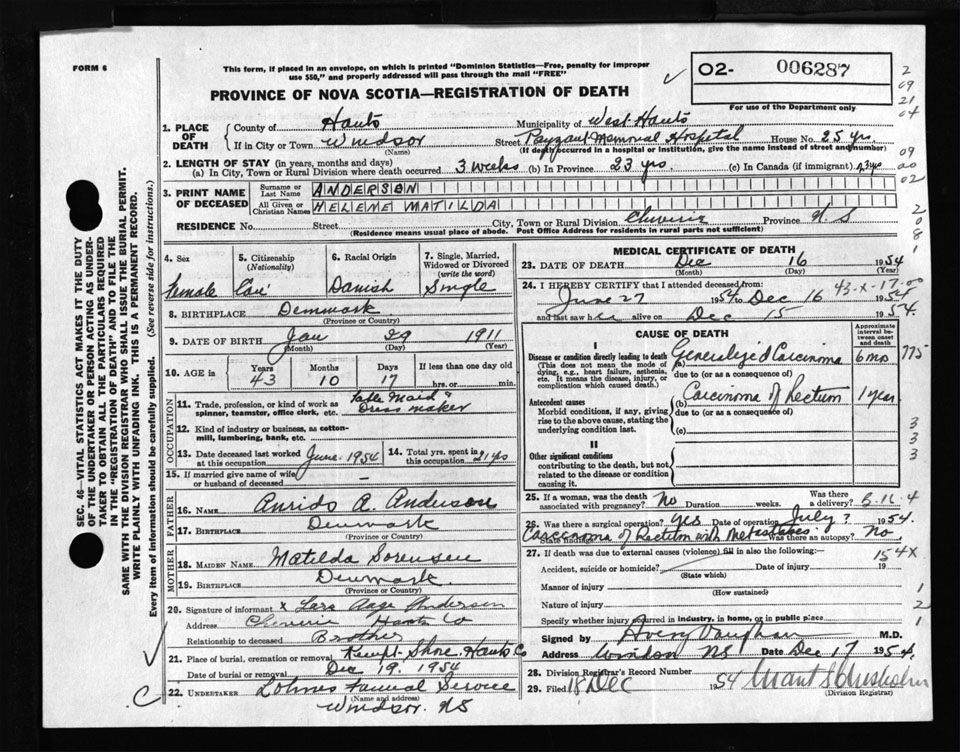 FORM 6
This form, if placed in an envelope, on which is printed "Dominion Statistics—Free, penalty for improper
use $50," and properly addressed will pass through the mail "FREE"
PROVINCE OF NOVA SCOTIA—REGISTRATION OF DEATH
O2- 006287
For use of the Department only
1. PLACE OF DEATH
County of Hants Municipality of West Hants
If in City or Town Windsor Street Payzant Memorial Hospital House No. 25 yrs
(Name) (If death occurred in a hospital or institution, give the name instead of street and number)
2. LENGTH OF STAY (in years, months and days)
(a) In City, Town or Rural Division where death occurred 3 weeks (b) In Province 23 yrs. (c) In Canada (if immigrant) 23 yrs
3. PRINT NAME OF DECEASED
Surname or Last Name ANDERSEN
All Given or Christian Names HELENE MATILDA
RESIDENCE No. Street City, Town or Rural Division Cheverie Province N S
(Residence means usual place of abode. Post Office Address for residents in rural parts not sufficient)
4. Sex Female
5. Citizenship (Nationality) Can
6. Racial Origin Danish
7. Single, Married, Widowed or Divorced (write the word) Single
8. BIRTHPLACE Denmark
(Province or Country)
9. DATE OF BIRTH Jan 29 1911
(Month) (Day) (Year)
10. AGE in Years 43 Months 10 Days 17 If less than one day hrs. or min.
OCCUPATION
11. Trade, profession, or kind of work as spinner, teamster, office clerk, etc. Table Maid & Dress maker
12. Kind of industry or business, as cotton-mill, lumbering, bank, etc.
13. Date deceased last worked at this occupation June 1954
14. Total yrs. spent in this occupation 21 yrs
15. If married give name of wife or husband of deceased —
FATHER
16. NAME A. Andersen
17. BIRTHPLACE Denmark
(Province or Country)
MOTHER
18. MAIDEN NAME Matilda Sorensen
19. BIRTHPLACE Denmark
(Province or Country)
20. Signature of informant x Lars Aage Andersen
Address Cheverie Hants Co
Relationship to deceased Brother
21. Place of burial, cremation or removal Kempt Shore Hants Co
Date of burial or removal Dec 19, 1954
22. UNDERTAKER Lohnes Funeral Service
(Name and address)
Windsor NS
MEDICAL CERTIFICATE OF DEATH
23. DATE OF DEATH Dec 16 1954
(Month) (Day) (Year)
43-X-17-00
24. I HEREBY CERTIFY that I attended deceased from:
June 27 1954 to Dec 16 1954
and last saw her alive on Dec 15 1954.
CAUSE OF DEATH
Approximate interval between onset and death
I
Disease or condition directly leading to death
(This does not mean the mode of dying, e.g., heart failure, asthenia, etc. It means the disease, injury, or complication which caused death.)
(a) Generalized Carcinoma 6 mos 775
due to (or as a consequence of)
Antecedent causes
Morbid conditions, if any, giving rise to the above cause, stating the underlying condition last.
(b) Carcinoma of Rectum 1 year
due to (or as a consequence of)
(c)
II
Other significant conditions
contributing to the death, but not related to the disease or condition causing it.
25. If a woman, was the death associated with pregnancy? No Duration weeks. Was there a delivery? B-16-4
26. Was there a surgical operation? yes Date of operation July? 1954.
State findings Carcinoma of Rectum with Metastases Was there an autopsy? No
27. If death was due to external causes (violence) fill in also the following:— 154X
Accident, suicide or homicide? Date of injury 19
(State which)
Manner of injury
(How sustained)
Nature of injury
Specify whether injury occurred in industry, in home, or in public place
Signed by Avery Vaughan M.D.
Address Windsor NS Date Dec 17 1954.
28. Division Registrar's Record Number
29. Filed 18 Dec 1954 Chisholm
(Division Registrar)
SEC. 46—VITAL STATISTICS ACT MAKES IT THE DUTY
OF THE UNDERTAKER OR PERSON ACTING AS UNDER-
TAKER TO OBTAIN ALL THE PARTICULARS REQUIRED
IN THE "REGISTRATION OF DEATH" AND TO FILE THE
SAME WITH THE DIVISION REGISTRAR WHO SHALL ISSUE THE BURIAL PERMIT.
WRITE PLAINLY WITH UNFADING INK. THIS IS A PERMANENT RECORD.
Every item of information should be carefully supplied. (See reverse side for instructions.)
2
09
21
04
09
00
02
2
0
8
1
3
3
3
1
2
1